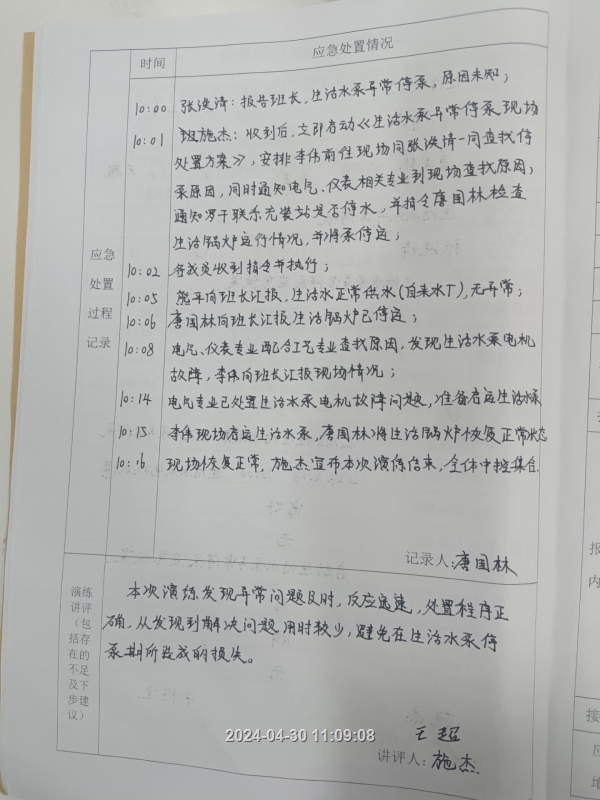 时间
应急处置情况
10:00 张焕清：报告班长，生活水泵异常停泵，原因未知；
10:01 班施杰：收到后，立即启动《生活水泵异常停泵现场
处置方案》，安排李伟前往现场同张焕清一同查找停
泵原因，同时通知电气、仪表相关专业到现场查找原因，
通知 联系充装站是否停水，并指令唐国林检查
生活锅炉运行情况，并将泵停运；
10:02 各成员收到指令并执行；
10:05 熊平向班长汇报，生活水正常供水（自来水厂），无异常；
10:06 唐国林向班长汇报生活锅炉已停运；
10:08 电气、仪表专业配合工艺专业查找原因，发现生活水泵电机
故障，李伟向班长汇报现场情况；
10:14 电气专业已处置生活水泵电机故障问题，准备启运生活水泵
10:15 李伟现场启运生活水泵，唐国林将生活锅炉恢复正常状态
10:16 现场恢复正常，施杰宣布本次演练结束，全体中控集合
应急
处置
过程
记录
记录人：唐国林
演练
讲评
（包
括存
在的
不足
及下
步建
议）
本次演练发现异常问题及时，反应迅速，处置程序正
确，从发现到解决问题用时较少，避免在生活水泵停
泵期所造成的损失。
王超
讲评人：施杰
2024-04-30 11:09:08
报
内
接
应
增